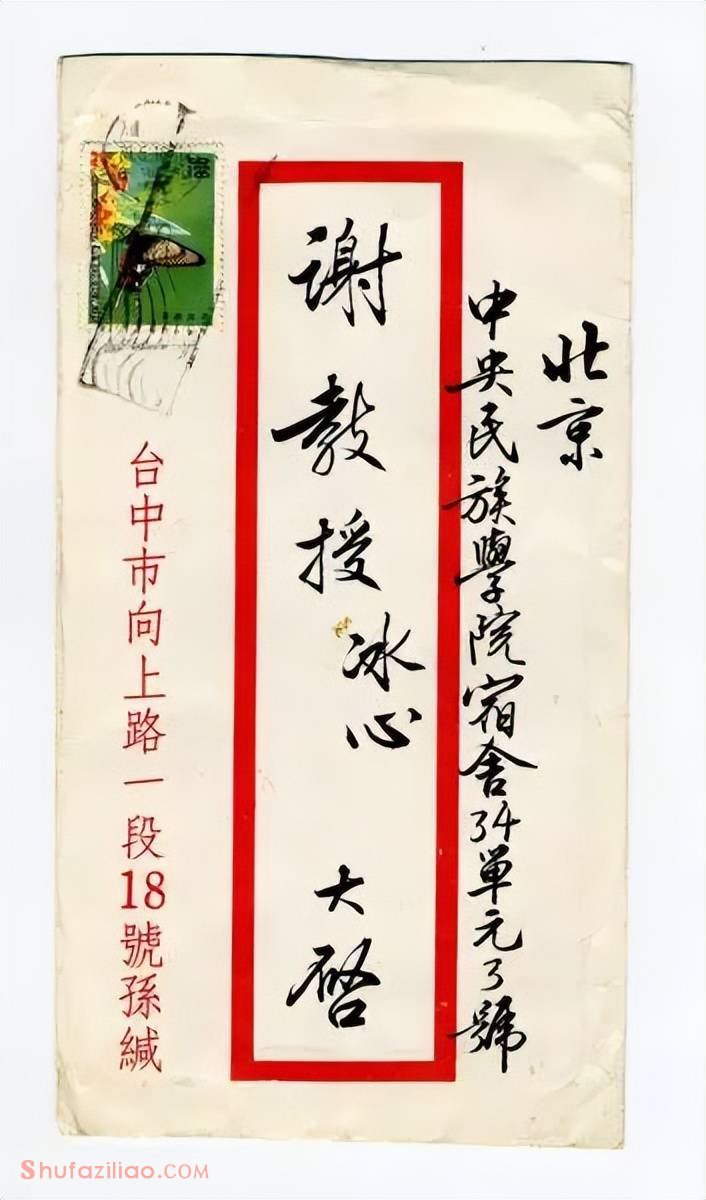 北京
中央民族學院宿舍34單元3號
谢教授冰心 大啓
台中市向上路一段18號孫緘
Shufaziliao.COM